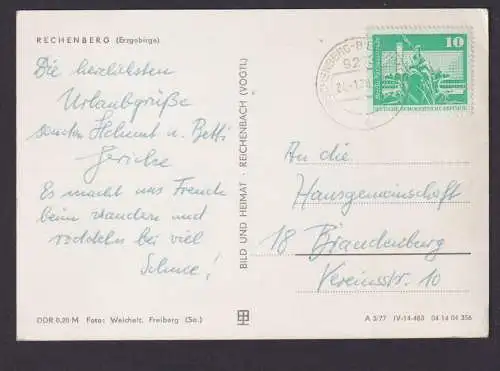 RECHENBERG (Erzgebirge)
Die herzlichsten
Urlaubgrüße
senden Helmut u. Betti
Gericke
Es macht uns Freude
beim wandern und
roddeln bei viel
Schnee!
DDR 0,20 M Foto: Weichelt, Freiberg (Sa.)
BILD UND HEIMAT · REICHENBACH (VOGTL)
RECHENBERG-B
92
10
DEUTSCHE DEMOKRATISCHE REPUBLIK
An die
Hausgemeinschaft
18 Brandenburg
Vereinsstr. 10
A 3/77 IV-14-483 04 14 04 356